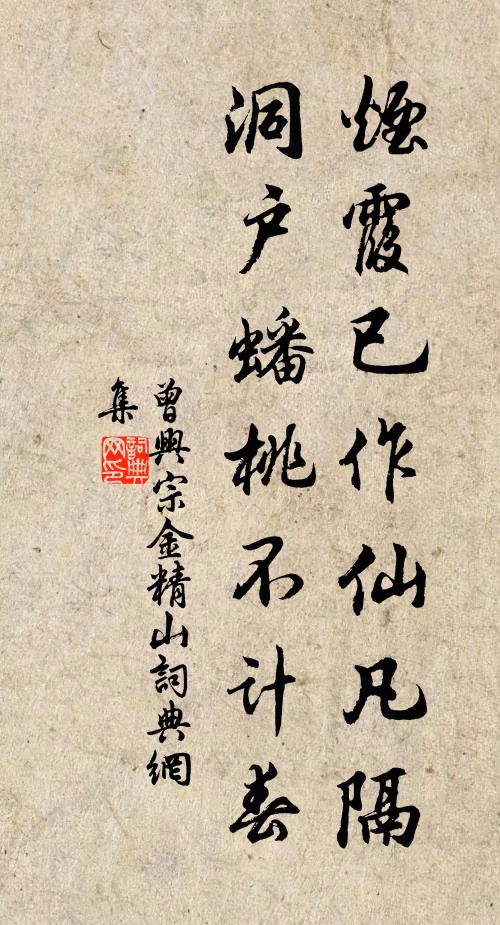 煙霞已作仙凡隔
洞户蟠桃不計春
曾興宗金精山詞典網
集
詞典網印